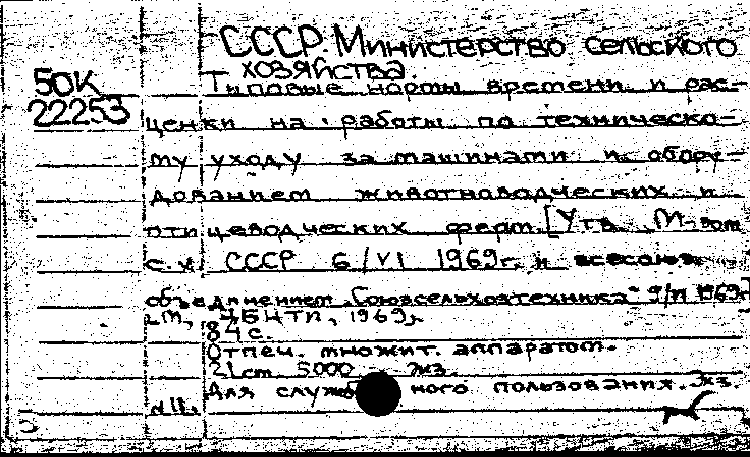 СССР. Министерство сельского
хозяйства.
50К
22253
Типовые нормы времени и рас-
ценки на работы по техническо-
му уходу за машинами и обору-
дованием животноводческих и
птицеводческих ферм. [Утв. М-вом
с. х. СССР 6/VI 1969г. и всесоюзн.
объединением "Союзсельхозтехника" 9/VI 1969г.]
М., ЦБНТИ, 1969г.
84 с.
Отпеч. множит. аппаратом.
21 см. 5000 экз.
Для служебного пользования. Экз.